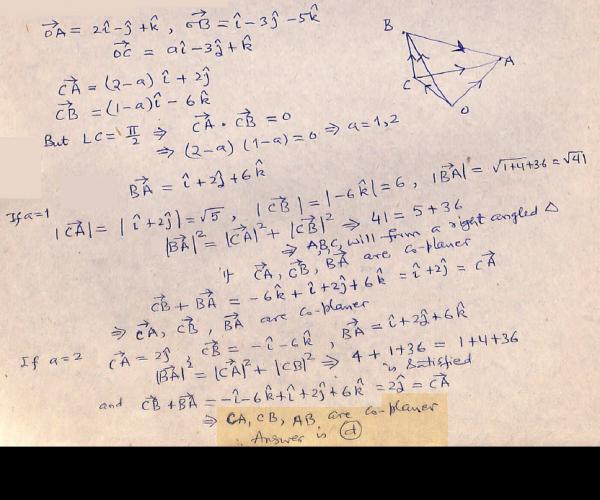 OA→ = 2î-ĵ+k̂ , OB→ = î-3ĵ-5k̂
OC→ = aî-3ĵ+k̂
CA→ = (2-a)î + 2ĵ
CB→ = (1-a)î - 6k̂
But LC = π/2 ⇒ CA→ · CB→ = 0
⇒ (2-a)(1-a)=0 ⇒ a=1,2
BA→ = î+2ĵ+6k̂
If a=1
|CA→| = |î+2ĵ| = √5 , |CB→| = |-6k̂| = 6, |BA→| = √1+4+36 = √41
|BA→|² = |CA→|² + |CB→|² ⇒ 41 = 5+36
⇒ ABC, will from a right angled △
If CA→, CB→, BA→ are Co-planer
CB→ + BA→ = -6k̂ + î +2ĵ + 6k̂ = î+2ĵ = CA→
⇒ CA→, CB→, BA→ are Co-planer
If a=2 CA→ = 2ĵ , CB→ = -î-6k̂ , BA→ = î+2ĵ+6k̂
|BA→|² = |CA→|² + |CB|² ⇒ 4+1+36 = 1+4+36
is Satisfied
and CB→ + BA→ = -î-6k̂+î+2ĵ+6k̂ = 2ĵ = CA→
⇒ CA, CB, AB, are Co-planer
∴ Answer is (d)
B
A
C
O